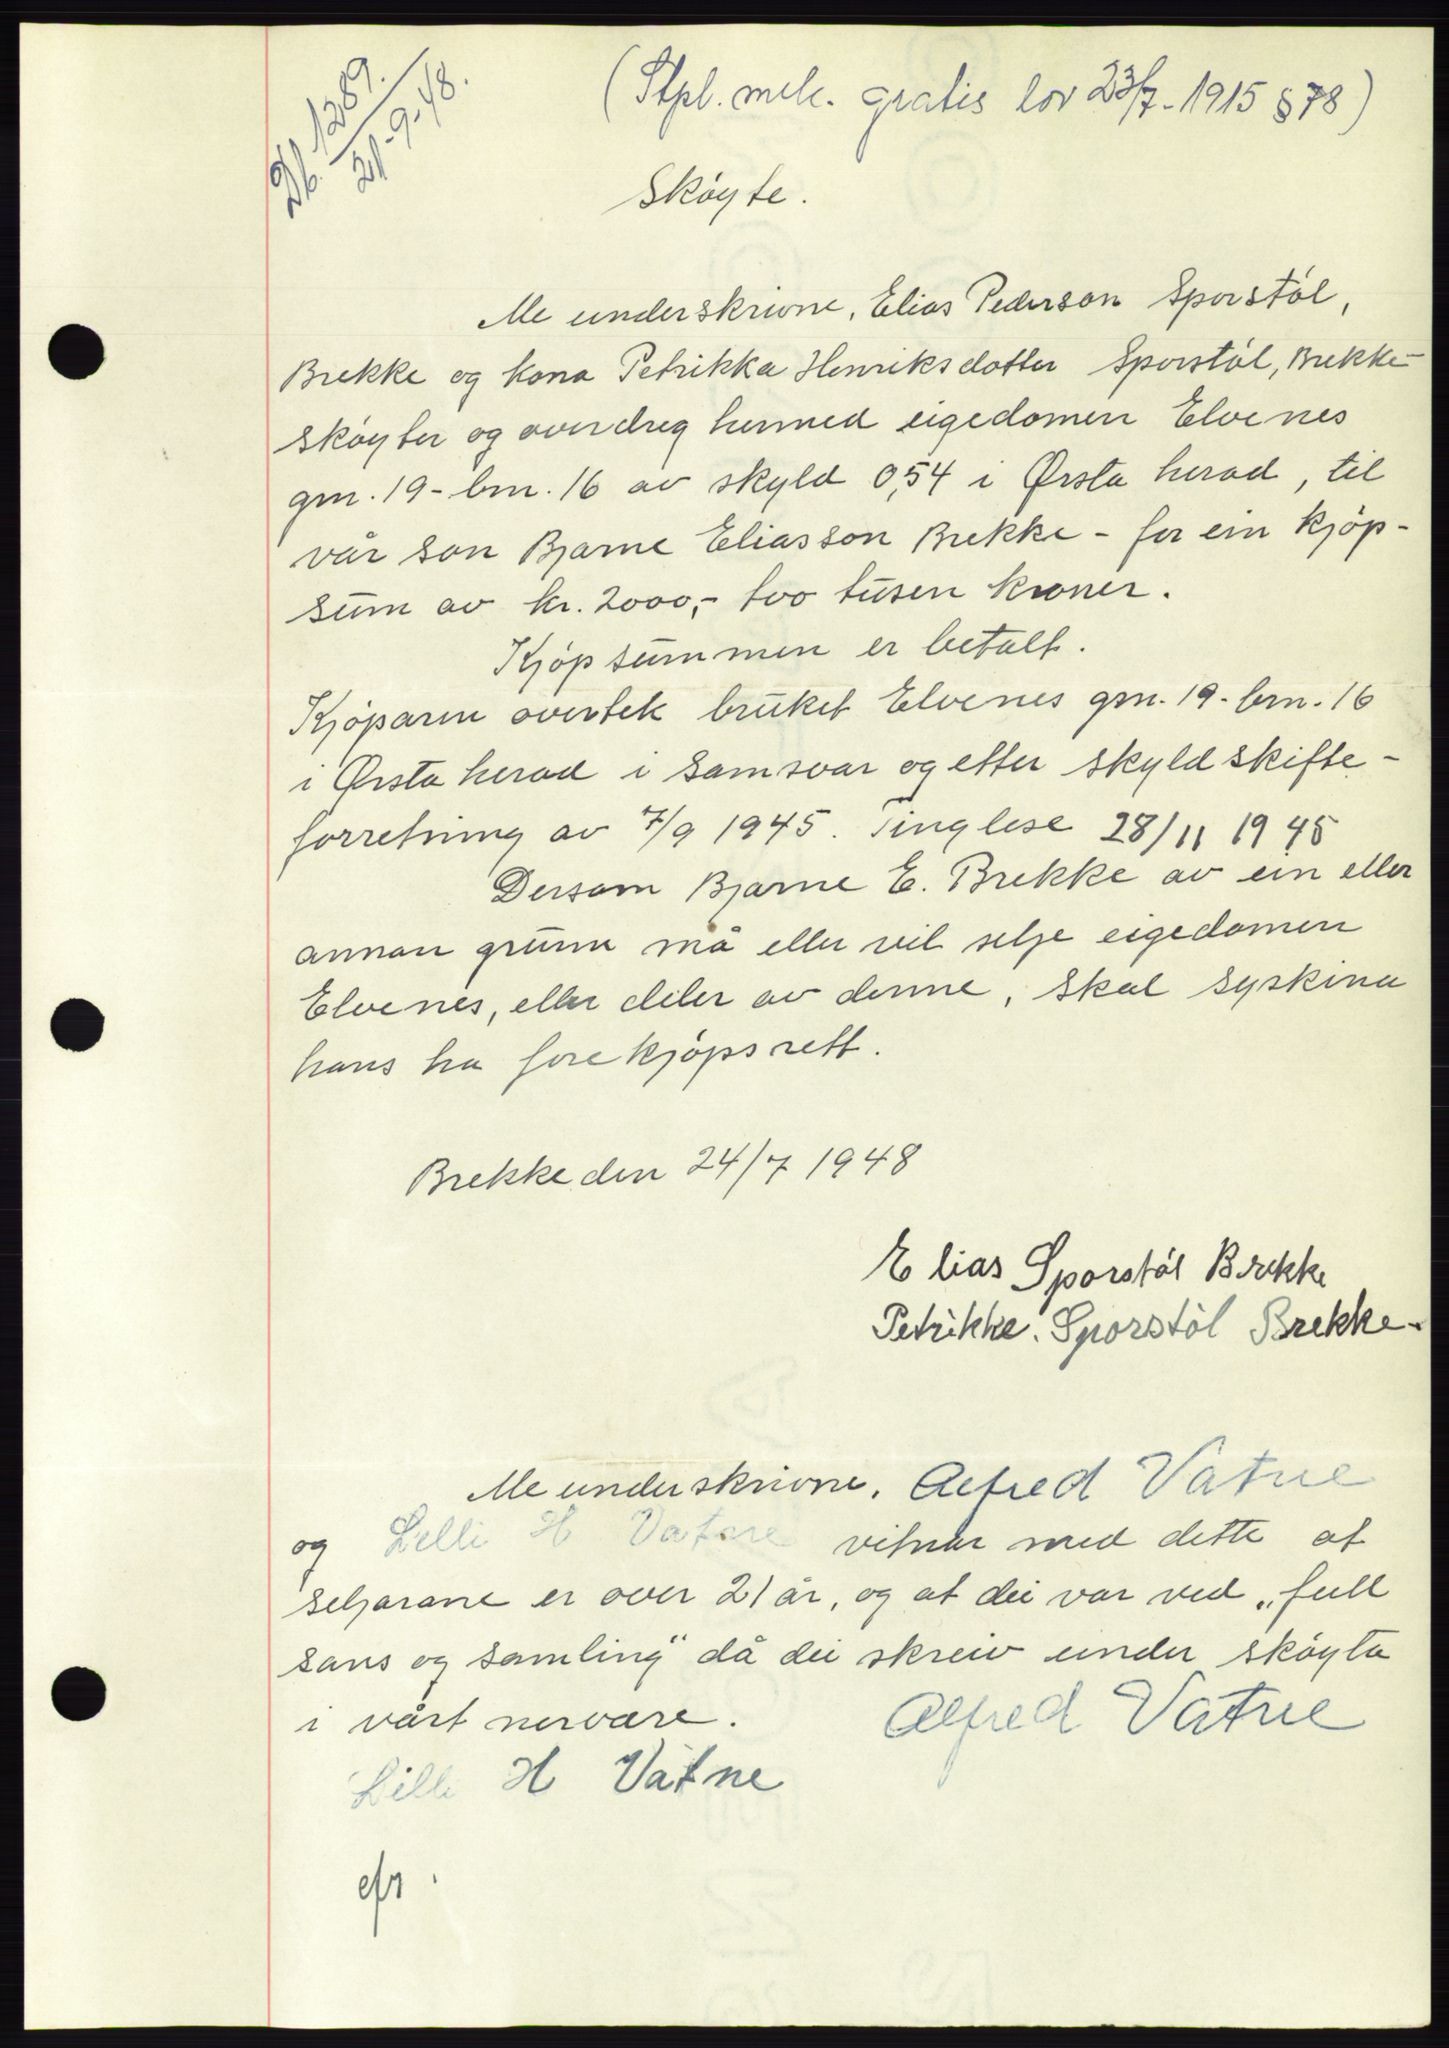 Db. 1289.
21-9-48.
(Stpl. merk. gratis lov 23/7-1915 § 78)
Skøyte.
Me underskrivne, Elias Pederson Sporstøl,
Brekke og kona Petrikka Henriksdotter Sporstøl, Brekke -
skøyter og overdreg hermed eigedomen Elvenes
gnr. 19 - bnr. 16 av skyld 0,54 i Ørsta herad, til
vår son Bjarne Eliasson Brekke - for ein kjøp-
sum av kr. 2000,- too tusen kroner.
Kjøpsummen er betalt.
Kjøparen overtek bruket Elvenes gnr. 19 - bnr. 16
i Ørsta herad i samsvar og etter skyldskifte-
forretning av 7/9 1945. Tinglese 28/11 1945
Dersom Bjarne E. Brekke av ein eller
annan grunn må eller vil selje eigedomen
Elvenes, eller deler av denne, skal syskina
hans ha forekjøpsrett.
Brekke den 24/7 1948
Elias Sporstøl Brekke
Petrikke. Sporstøl Brekke.
Me underskrivne, Alfred Vatne
og Lilli H Vatne vitnar med dette at
seljarane er over 21 år, og at dei var ved „full
sans og samling" då dei skreiv under skøyta
i vårt nervære. Alfred Vatne
Lilli H Vatne